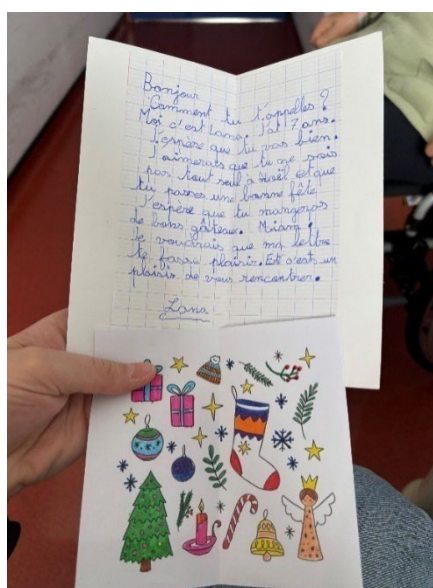 Bonjour
Comment tu t'appelles ?
Moi c'est Lana. J'ai 7 ans.
J'espère que tu vas bien.
J'aimerais que tu ne sois
pas tout seul à Noël et que
tu passes une bonne fête.
J'espère que tu mangeras
de bons gâteaux. Miam !
Je voudrais que ma lettre
te fasse plaisir. Et c'est un
plaisir de vous rencontrer.
Lana